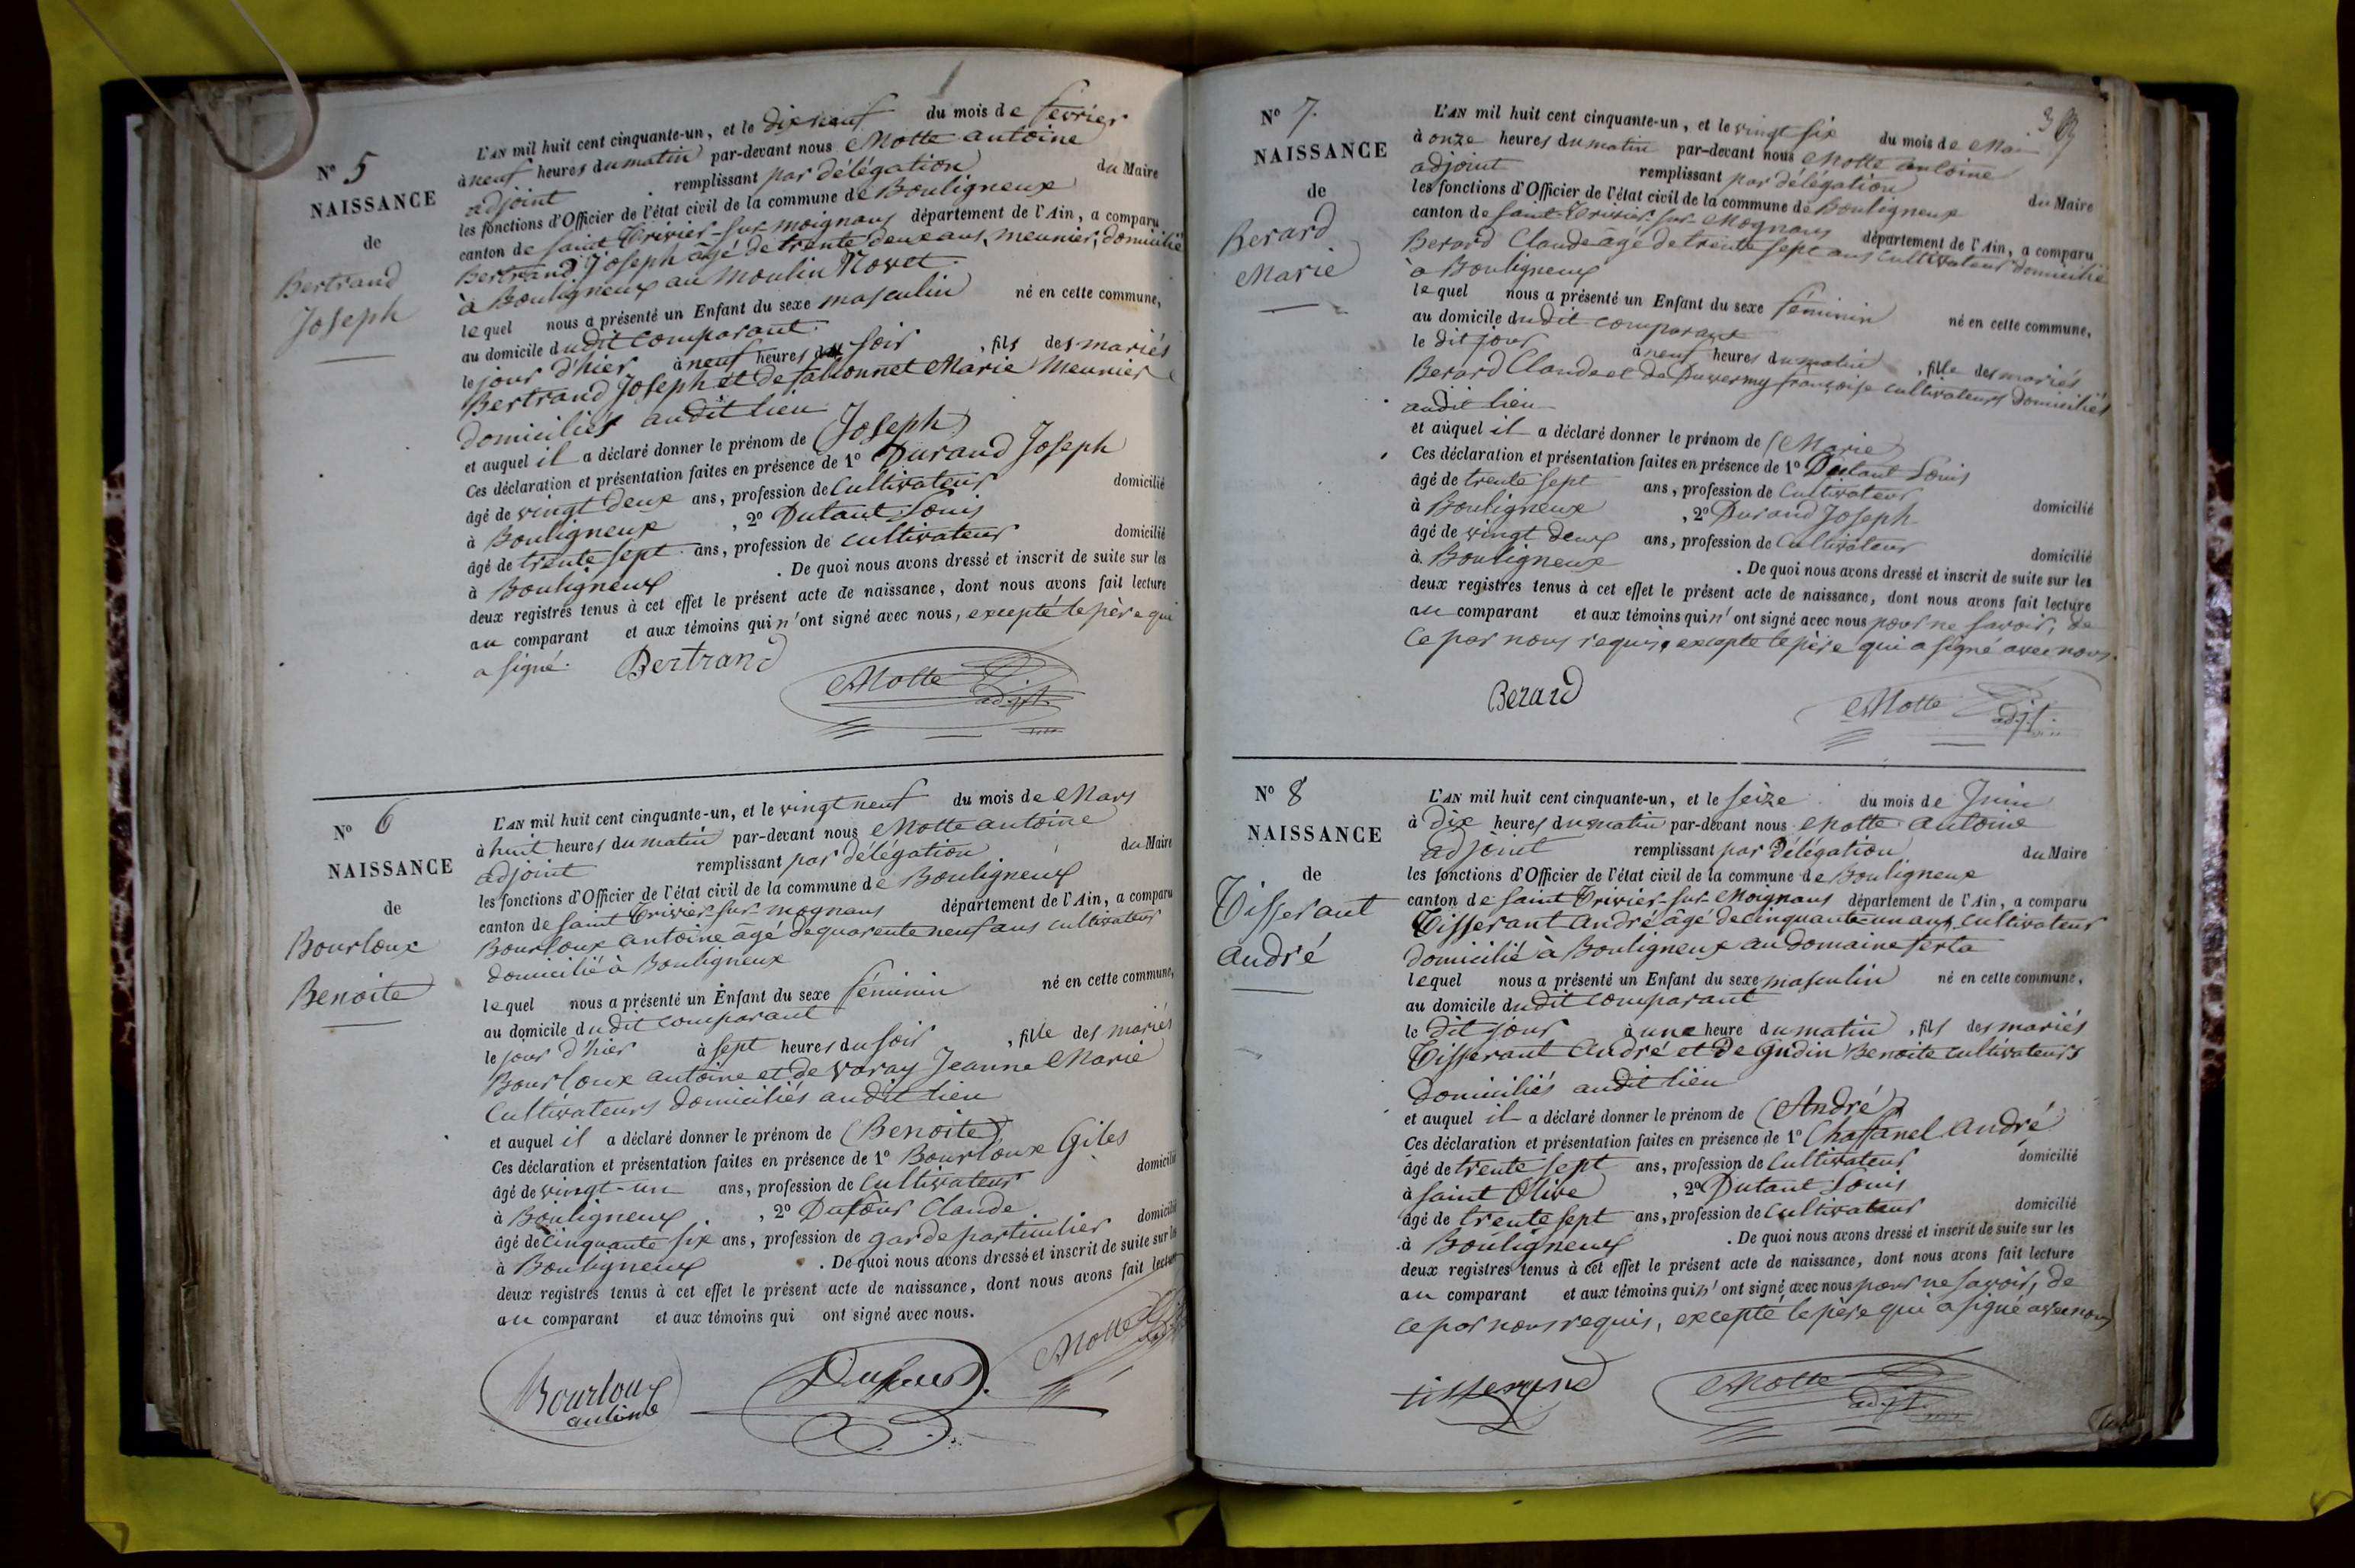 N° 5
NAISSANCE
de
Bertrand
Joseph
L'AN mil huit cent cinquante-un, et le dix neuf du mois de fevrier
à neuf heures du matin par-devant nous Motte antoine
adjoint remplissant par délégation du Maire
les fonctions d'Officier de l'état civil de la commune de Bouligneux
canton de saint Trivier-sur-moignans département de l'Ain, a comparu
Bertrand Joseph âgé de trente deux ans, meunier, domicilié
à Bouligneux au moulin Novet.
lequel nous a présenté un Enfant du sexe masculin né en cette commune,
au domicile dudit comparant.
le jour d'hier à neuf heures du soir, fils des mariés
Bertrand Joseph et de Marie Meunier
domiciliés audit lieu
et auquel il a déclaré donner le prénom de (Joseph)
Ces déclaration et présentation faites en présence de 1° Durand Joseph
âgé de vingt deux ans, profession de Cultivateur domicilié
à Bouligneux, 2° Dutant Louis
âgé de trente sept ans, profession de cultivateur domicilié
à Bouligneux. De quoi nous avons dressé et inscrit de suite sur les
deux registres tenus à cet effet le présent acte de naissance, dont nous avons fait lecture
au comparant et aux témoins qui n'ont signé avec nous, excepté le père qui
a signé. Bertrand
Motte adjt.
N° 6
NAISSANCE
de
Bourloux
Benoite
L'AN mil huit cent cinquante-un, et le vingt neuf du mois de Mars
à huit heures du matin par-devant nous Motte antoine
adjoint remplissant par délégation du Maire
les fonctions d'Officier de l'état civil de la commune de Bouligneux
canton de saint Trivier-sur-mognans département de l'Ain, a comparu
Bourloux antoine âgé de quarente neuf ans cultivateur
domicilié à Bouligneux
lequel nous a présenté un Enfant du sexe féminin né en cette commune,
au domicile dudit comparant
le jour d'hier à sept heures du soir, fille des mariés
Bourloux antoine et de Varay Jeanne Marie
Cultivateurs domiciliés audit lieu
et auquel il a déclaré donner le prénom de (Benoite)
Ces déclaration et présentation faites en présence de 1° Bourloux Giles
âgé de vingt-un ans, profession de Cultivateur domicilié
à Bouligneux, 2° Dufour Claude
âgé de cinquante six ans, profession de garde particulier domicilié
à Bouligneux. De quoi nous avons dressé et inscrit de suite sur les
deux registres tenus à cet effet le présent acte de naissance, dont nous avons fait lecture
au comparant et aux témoins qui ont signé avec nous.
Bourloux antoine Dufour Motte
N° 7.
NAISSANCE
de
Berard
Marie
L'AN mil huit cent cinquante-un, et le vingt six du mois de Mai
à onze heures du matin par-devant nous Motte antoine
adjoint remplissant par délégation du Maire
les fonctions d'Officier de l'état civil de la commune de Bouligneux
canton de saint-Trivier-sur-Mognans département de l'Ain, a comparu
Berard Claude âgé de trente sept ans cultivateur domicilié
à Bouligneux
lequel nous a présenté un Enfant du sexe féminin né en cette commune,
au domicile dudit comparant
le dit jour à neuf heures du matin, fille des mariés
Berard Claude et de françoise cultivateurs domiciliés
audit lieu
et auquel il a déclaré donner le prénom de (Marie)
Ces déclaration et présentation faites en présence de 1° Dutant Louis
âgé de trente sept ans, profession de Cultivateur domicilié
à Bouligneux, 2° Durand Joseph
âgé de vingt deux ans, profession de Cultivateur domicilié
à Bouligneux. De quoi nous avons dressé et inscrit de suite sur les
deux registres tenus à cet effet le présent acte de naissance, dont nous avons fait lecture
au comparant et aux témoins qui n'ont signé avec nous pour ne savoir, de
ce par nous requis, excepté le père qui a signé avec nous.
Berard Motte adjt.
N° 8
NAISSANCE
de
Tisserant
André
L'AN mil huit cent cinquante-un, et le seize du mois de Juin
à dix heures du matin par-devant nous Motte antoine
adjoint remplissant par délégation du Maire
les fonctions d'Officier de l'état civil de la commune de Bouligneux
canton de saint Trivier-sur-Moignans département de l'Ain, a comparu
Tisserant andré âgé de cinquante un ans, cultivateur
domicilié à Bouligneux au domaine Serta
lequel nous a présenté un Enfant du sexe masculin né en cette commune,
au domicile dudit comparant
le dit jour à une heure du matin, fils des mariés
Tisserant andré et de Gudin Benoite cultivateurs
domiciliés audit lieu
et auquel il a déclaré donner le prénom de (André)
Ces déclaration et présentation faites en présence de 1° Chassanel André
âgé de trente sept ans, profession de Cultivateur domicilié
à saint Olive, 2° Dutant Louis
âgé de trente sept ans, profession de Cultivateur domicilié
à Bouligneux. De quoi nous avons dressé et inscrit de suite sur les
deux registres tenus à cet effet le présent acte de naissance, dont nous avons fait lecture
au comparant et aux témoins qui n'ont signé avec nous pour ne savoir, de
ce par nous requis, excepté le père qui a signé avec nous
tisserand Motte adjt.